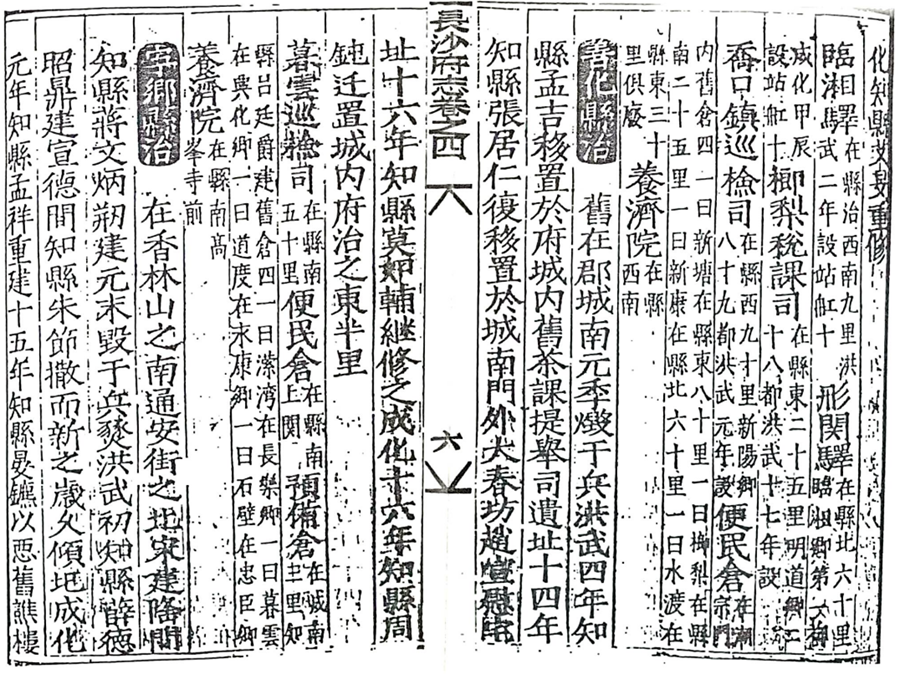 化知縣
重修
臨湘驛在縣治西南九里洪武二年設站舡十
形関驛在縣北六十里臨湘鄉第
咸化甲辰設站舡十
㮾梨稅課司在縣東二十五里明道鄉二十八都洪武十七年設
喬口鎮巡檢司在縣西九十里新陽鄉八十九都洪武元年設
便民倉在
內舊倉四一曰新塘在縣東八十里一曰㮾梨在縣
南二十五里一曰新康在縣北六十里一曰水渡在
縣東三十里俱廢
養濟院在縣西南
善化縣治
舊在郡城南元季燬于兵洪武四年知
縣孟吉移置於府城內舊茶課提舉司遺址十四年
知縣張居仁復移置於城南門外大春坊趙
長沙府志卷之四
六
址十六年知縣莫如輔繼修之成化十六年知縣周
鈍迁置城內府治之東半里
暮雲巡檢司在縣南五十里
便民倉在縣南上関
預備倉在城南三里知
縣呂廷爵建舊倉四一曰潆湾在長樂鄉一曰暮雲
在興化鄉一曰道度在末康鄉一曰石壁在忠臣鄉
養濟院在縣南高峯寺前
寧鄉縣治
在香林山之南通安街之北宋建隆間
知縣蔣文炳剏建元末毀于兵燹洪武初知縣薛德
昭鼎建宣德間知縣朱節撤而新之歲久傾圮成化
元年知縣孟祥重建十五年知縣晏鑣以思舊譙樓